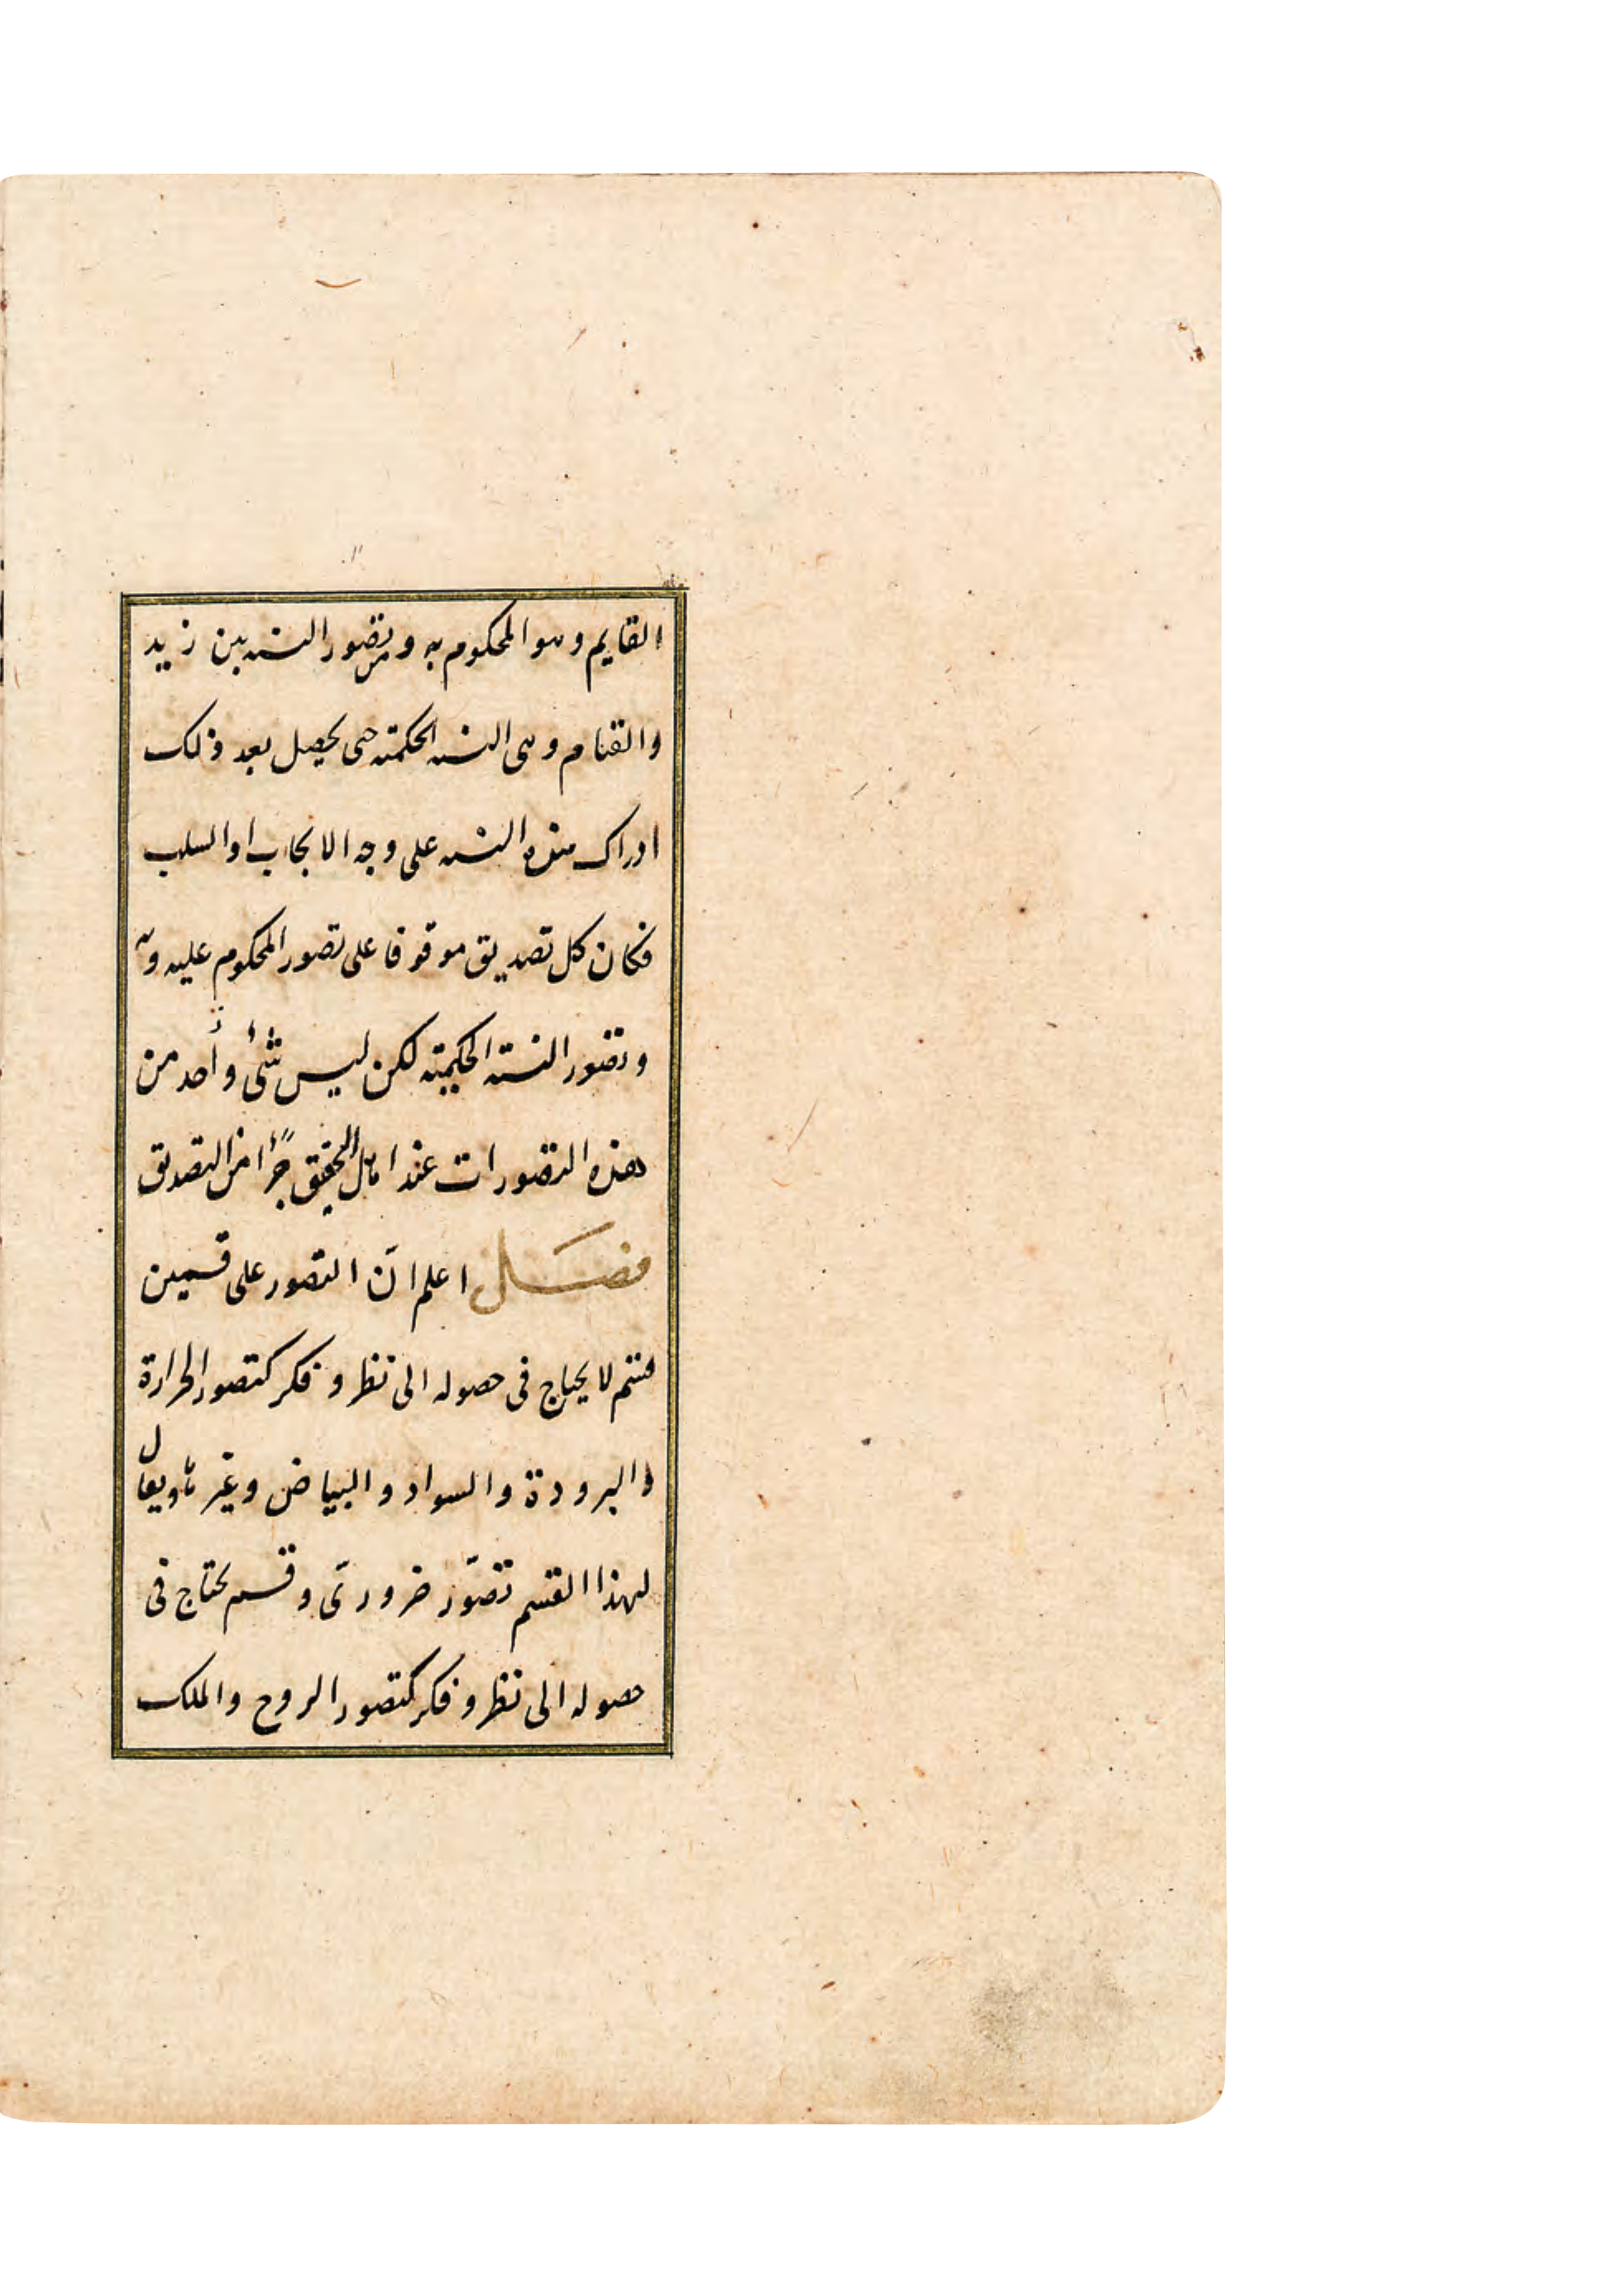 القايم وهو المحكوم به ومن تصور النسبه بين زيد
والقيام وهى النسبه الحكميه حتى يحصل بعد ذلك
ادراك هذه النسبه على وجه الايجاب او السلب
فكان كل تصديق موقوفا على تصور المحكوم عليه وبه
وتصور النسبة الحكمية لكن ليس شئ واحد من
هذه التصورات عند اهل التحقيق جزأ من التصديق
فصل اعلم انّ التصور على قسمين
قسم لا يحتاج فى حصوله الى نظر وفكر كتصور الحرارة
والبرودة والسواد والبياض وغيرها ويقال
لهذا القسم تصوّر ضرورىّ وقسم يحتاج فى
حصوله الى نظر وفكر كتصور الروح والملك